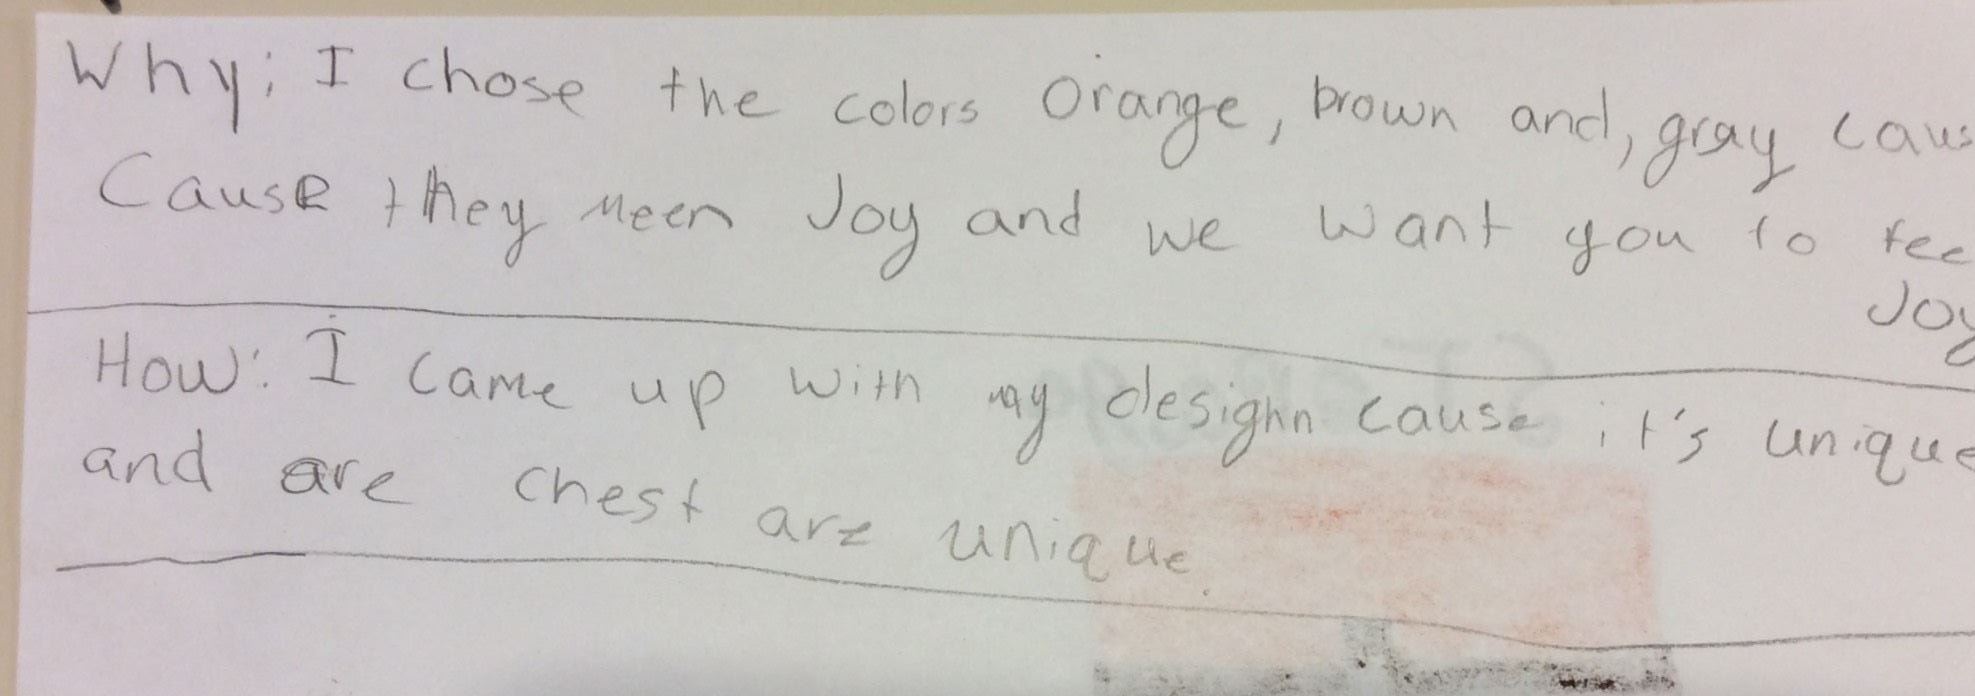 Why; I chose the colors orange, brown and, gray caus
Cause they meen Joy and we want you to fee
Joy
How: I came up with my desighn cause it's unique
and are chest are unique.